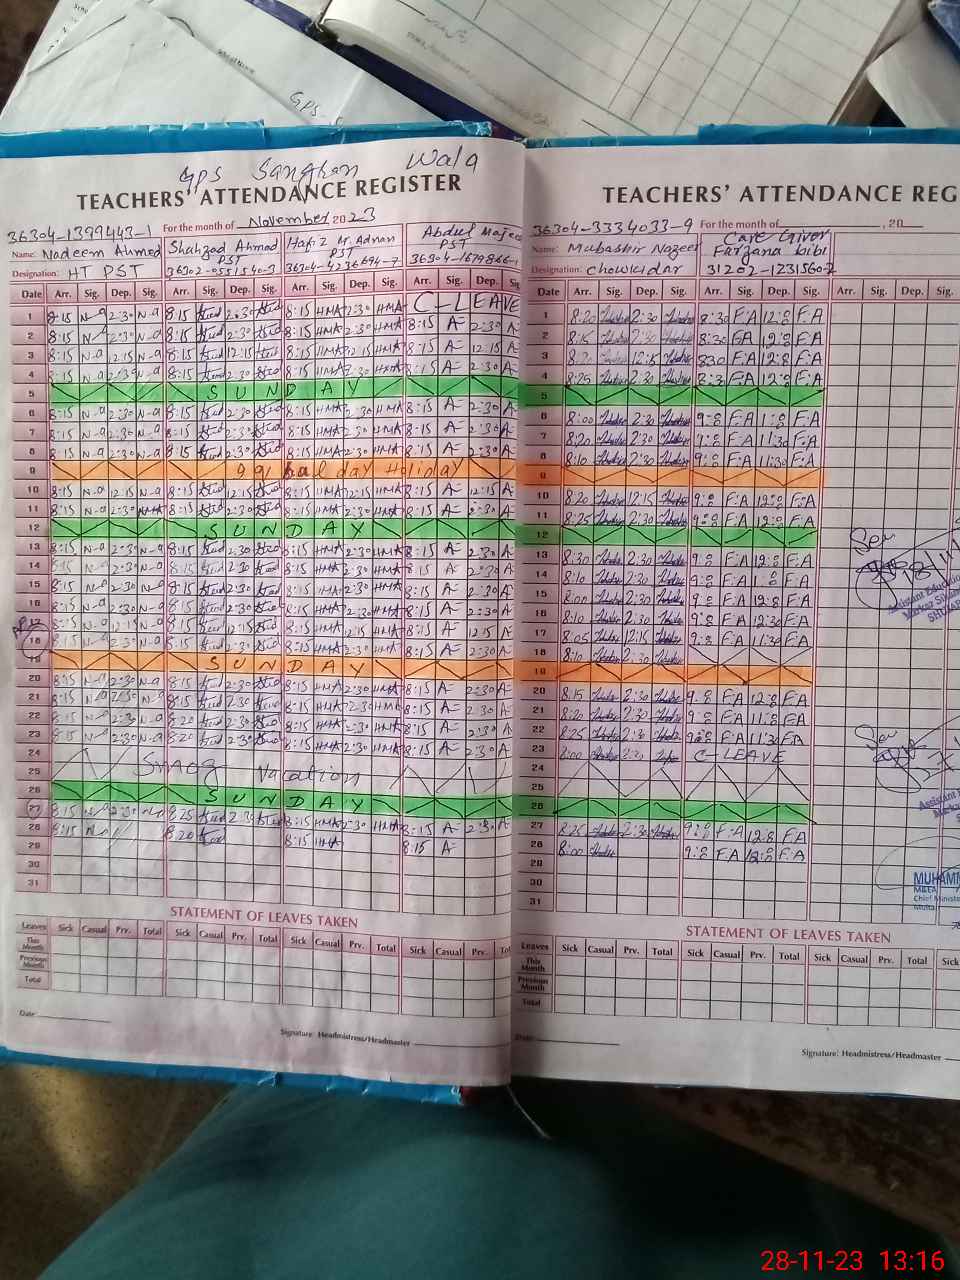 GPS Sanghan Wala
TEACHERS' ATTENDANCE REGISTER
For the month of November 2023
36304-1399443-1
Name: Nadeem Ahmed
Designation: HT PST
Shahzad Ahmad
PST
36302-0551540-3
Hafiz M. Adnan
PST
36304-4236694-7
Abdul Majeed
PST
Date Arr. Sig. Dep. Sig. Arr. Sig. Dep. Sig. Arr. Sig. Dep. Sig. Arr. Sig. Dep. Sig.
1 8:15 N-a 2:30 N-a 8:15 2:30 8:15 HMA 2:30 HMA C-LEAVE
2 8:15 N-a 2:30 N-a 8:15 2:30 8:15 HMA 2:30 HMA 8:15 A 2:30 A
3 8:15 N-a 12:15 N-a 8:15 12:15 8:15 HMA 12:15 HMA 8:15 A 12:15 A
4 8:15 N-a 2:30 N-a 8:15 2:30 8:15 HMA 2:30 HMA 8:15 A 2:30 A
5 SUNDAY
6 8:15 N-a 2:30 N-a 8:15 2:30 8:15 HMA 2:30 HMA 8:15 A 2:30 A
7 8:15 N-a 2:30 N-a 8:15 2:30 8:15 HMA 2:30 HMA 8:15 A 2:30 A
8 8:15 N-a 2:30 N-a 8:15 2:30 8:15 HMA 2:30 HMA 8:15 A 2:30 A
9 day Holiday
10 8:15 N-a 12:15 N-a 8:15 12:15 8:15 HMA 12:15 HMA 8:15 A 12:15 A
11 8:15 N-a 2:30 8:15 2:30 8:15 HMA 2:30 HMA 8:15 A 2:30 A
12 SUNDAY
13 8:15 N-a 2:30 N-a 8:15 2:30 8:15 HMA 2:30 HMA 8:15 A 2:30 A
14 8:15 N-a 2:30 N-a 8:15 2:30 8:15 HMA 2:30 HMA 8:15 A 2:30 A
15 8:15 N-a 2:30 N-a 8:15 2:30 8:15 HMA 2:30 HMA 8:15 A 2:30 A
16 8:15 N-a 2:30 N-a 8:15 2:30 8:15 HMA 2:30 HMA 8:15 A 2:30 A
17 8:15 N-a 12:15 N-a 8:15 12:15 8:15 HMA 12:15 HMA 8:15 A 12:15 A
18 8:15 N-a 2:30 N-a 8:15 2:30 8:15 HMA 2:30 HMA 8:15 A 2:30 A
19 SUNDAY
20 8:15 N-a 2:30 N-a 8:15 2:30 8:15 HMA 2:30 HMA 8:15 A 2:30 A
21 8:15 N-a 2:30 N-a 8:15 2:30 8:15 HMA 2:30 HMA 8:15 A 2:30 A
22 8:15 N-a 2:30 N-a 8:20 2:30 8:15 HMA 2:30 HMA 8:15 A 2:30 A
23 8:15 N-a 2:30 N-a 8:20 2:30 8:15 HMA 2:30 HMA 8:15 A 2:30 A
24 Smog Vacation
25
26 SUNDAY
27 8:15 N-a 2:30 N-a 8:25 2:30 8:15 HMA 2:30 HMA 8:15 A 2:30 A
28 8:15 N-a 8:20 8:15 HMA 8:15 A
29
30
31
STATEMENT OF LEAVES TAKEN
Leaves Sick Casual Prv. Total Sick Casual Prv. Total Sick Casual Prv. Total Sick Casual Prv. Tot
This Month
Previous Month
Total
Date
Signature: Headmistress/Headmaster
TEACHERS' ATTENDANCE REG
For the month of , 20
36304-3334033-9
Name: Mubashir Nazeer
Designation: Chowkidar
Care Giver
Farzana bibi
31202-1231560-2
Date Arr. Sig. Dep. Sig. Arr. Sig. Dep. Sig. Arr. Sig. Dep. Sig. Arr.
1 8:20 2:30 8:30 F.A 12:0 F.A
2 8:15 2:30 8:30 FA 12:0 F.A
3 8:20 12:15 830 F.A 12:0 F.A
4 8:25 2:30 8:30 F.A 12:0 F.A
5
6 8:00 2:30 9:0 F.A 1:0 F.A
7 8:20 2:30 9:0 F.A 11:30 F.A
8 8:10 2:30 9:0 F.A 11:30 F.A
9
10 8:20 12:15 9:0 F.A 12:0 F.A
11 8:25 2:30 9:0 F.A 12:0 F.A
12
13 8:30 2:30 9:0 F.A 12:0 F.A
14 8:10 2:30 9:0 F.A 1:0 F.A
15 8:00 2:30 9:0 F.A 12:0 F.A
16 8:10 2:30 9:0 F.A 12:30 F.A
17 8:05 12:15 9:0 F.A 11:30 F.A
18 8:10 2:30
19
20 8:15 2:30 9:0 F.A 12:0 F.A
21 8:20 2:30 9:0 F.A 11:0 F.A
22 8:25 2:30 9:0 F.A 11:30 F.A
23 8:00 2:30 C-LEAVE
24
25
26
27 8:25 2:30 9:0 F.A 12:0 FA
28 8:00 9:0 F.A 12:0 F.A
29
30
31
STATEMENT OF LEAVES TAKEN
Leaves Sick Casual Prv. Total Sick Casual Prv. Total Sick Casual Prv. Total Sick
This Month
Previous Month
Total
Date
Signature: Headmistress/Headmaster
MUHAMM
Chief Ministe
28-11-23 13:16